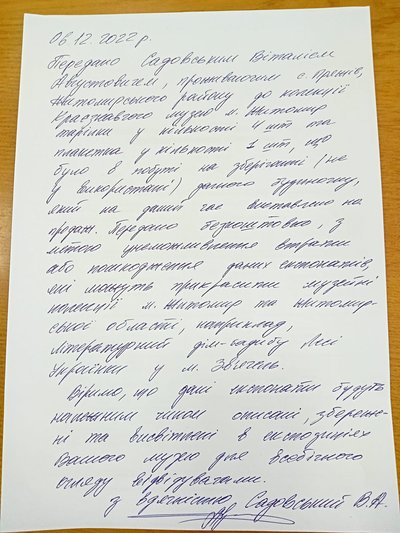 06.12.2022 р.
Передано Садовським Віталієм
Августовичем, проживаючим с. Пряжів,
Житомирського району до колекції
Краєзнавчого музею м. Житомир
тарілки у кількості 4 шт та
пляшка у кількості 1 шт, що
було в побуті на зберіганні (не
у використанні) даного будиночку,
який на даний час виставлено на
продаж. Передано безкоштовно, з
метою унеможливлення втрати
або пошкодження даних експонатів,
які можуть прикрасити музейні
колекції м. Житомир та Житомир-
ської області, наприклад,
літературний дім-садибу Лесі
Українки у м. Звягель.
Віримо, що дані експонати будуть
належним чином описані, збереже-
ні та висвітлені в експозиціях
Вашого музею для всебічного
огляду відвідувачами.
з вдячністю, Садовський В.А.